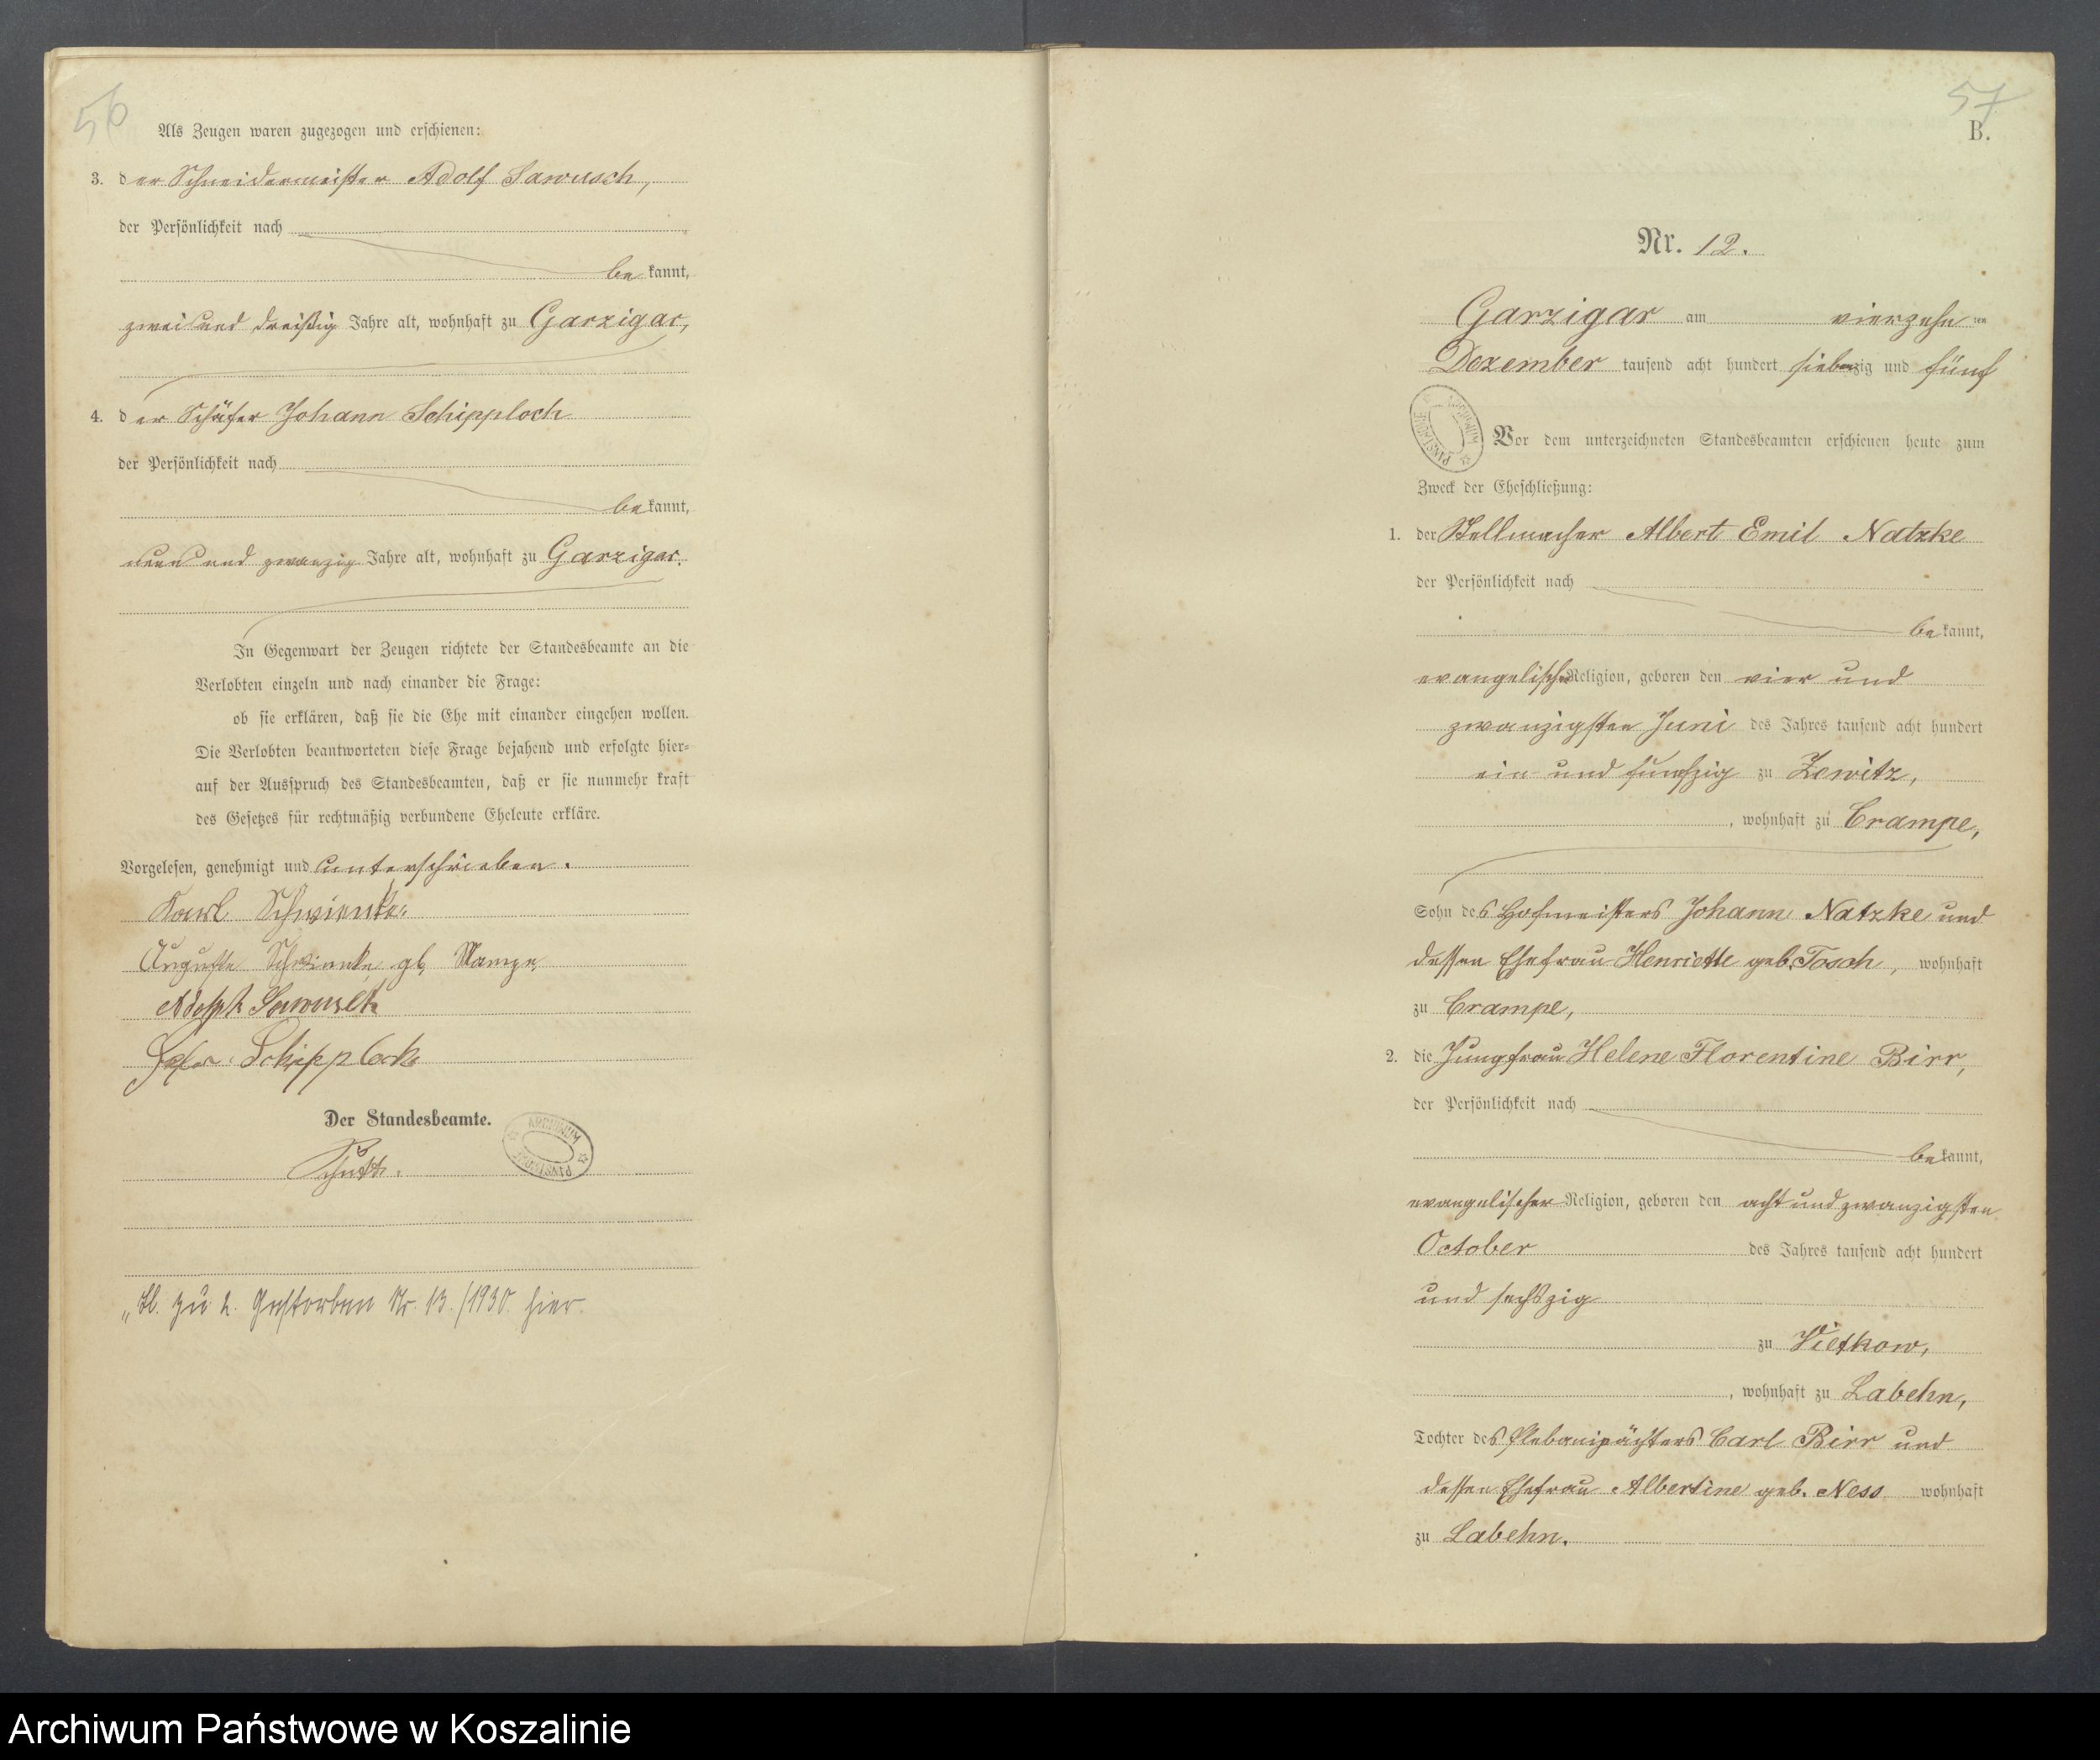 56
Als Zeugen waren zugezogen und erschienen:
3. der Schneidermeister Adolf Sawusch,
der Persönlichkeit nach
bekannt,
zwei und dreißig Jahre alt, wohnhaft zu Garzigar,
4. der Schäfer Johann Schipploch
der Persönlichkeit nach
bekannt,
und zwanzig Jahre alt, wohnhaft zu Garzigar.
In Gegenwart der Zeugen richtete der Standesbeamte an die
Verlobten einzeln und nach einander die Frage:
ob sie erklären, daß sie die Ehe mit einander eingehen wollen.
Die Verlobten beantworteten diese Frage bejahend und erfolgte hier=
auf der Ausspruch des Standesbeamten, daß er sie nunmehr kraft
des Gesetzes für rechtmäßig verbundene Eheleute erkläre.
Vorgelesen, genehmigt und unterschrieben.
Karl Schwienke
Auguste Schwienke gb
Adolph Sawusch
Schipplock
Der Standesbeamte.
ARCHIWUM PAŃSTWOWE
zu 2. Gestorben Nr. 13./1930. hier.
57
B.
Nr. 12.
Garzigar am vierzehnten
Dezember tausend acht hundert siebenzig und fünf
ARCHIWUM PAŃSTWOWE
Vor dem unterzeichneten Standesbeamten erschienen heute zum
Zweck der Eheschließung:
1. der Stellmacher Albert Emil Natzke
der Persönlichkeit nach
bekannt,
evangelischer Religion, geboren den vier und
zwanzigsten Juni des Jahres tausend acht hundert
ein und funfzig zu Zewitz,
, wohnhaft zu Crampe,
Sohn des Hofmeisters Johann Natzke und
dessen Ehefrau Henriette geb. Tosch, wohnhaft
zu Crampe,
2. die Jungfrau Helene Florentine Birr,
der Persönlichkeit nach
bekannt,
evangelischer Religion, geboren den acht und zwanzigsten
October des Jahres tausend acht hundert
und sechszig
zu Vietkow,
, wohnhaft zu Labehn,
Tochter des Carl Birr und
dessen Ehefrau Albertine geb. Ness wohnhaft
zu Labehn.
Archiwum Państwowe w Koszalinie